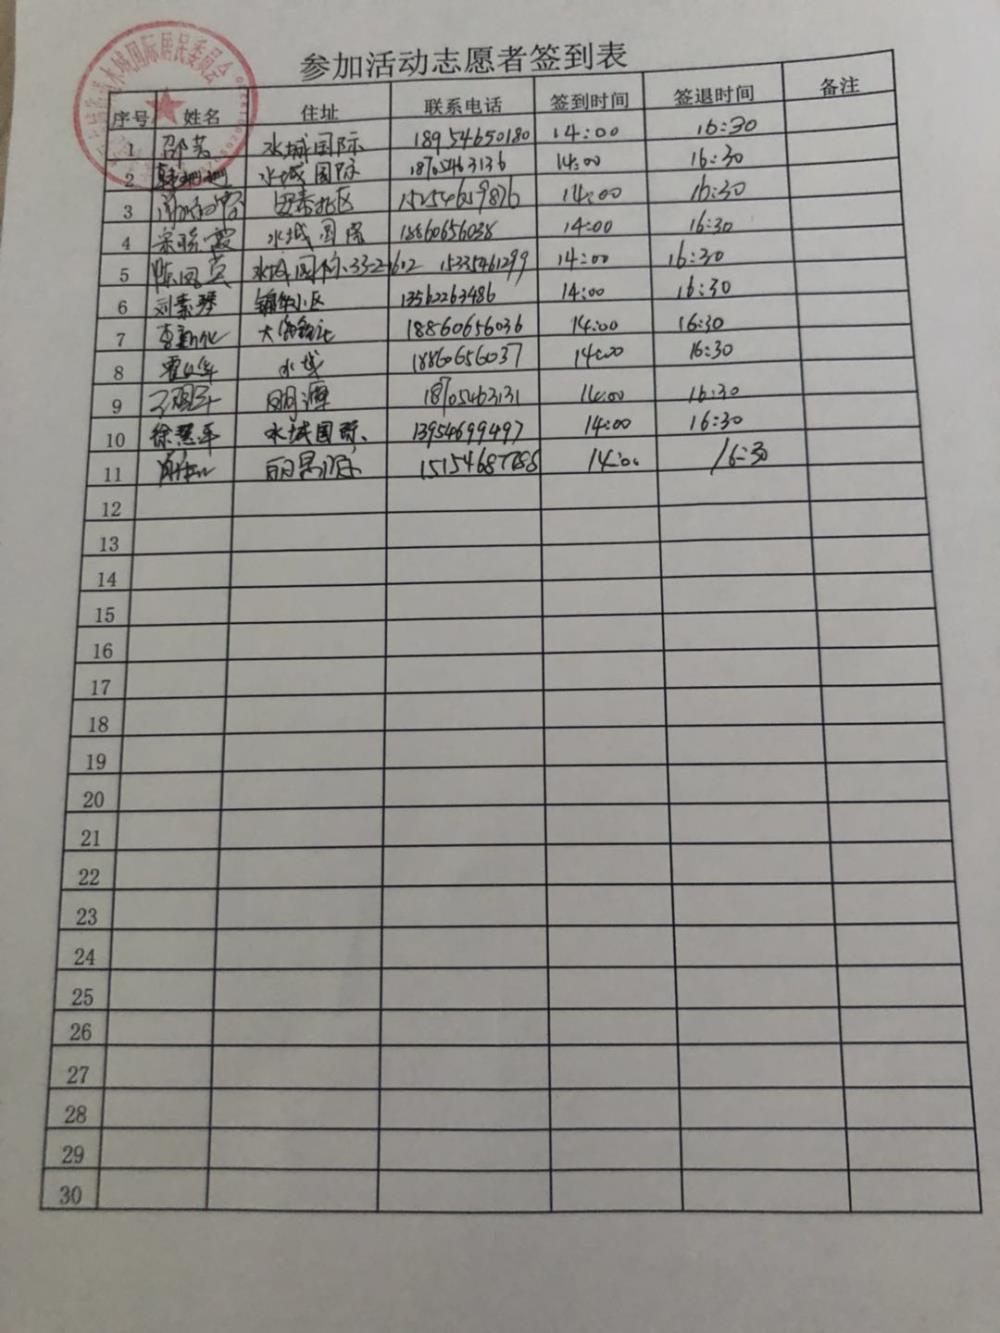 水城国际居民委员会
参加活动志愿者签到表
序号 姓名 住址 联系电话 签到时间 签退时间 备注
1 邵芳 水城国际 18954650180 14:00 16:30
2 水城国际 18705463136 14:00 16:30
3 北区 15254619876 14:00 16:30
4 宋晓霞 水城国际 18860656038 14:00 16:30
5 陈凤英 水城国际33-2-1612 15335461299 14:00 16:30
6 刘素琴 锦华小区 13562263486 14:00 16:30
7 李新化 18860656036 14:00 16:30
8 水城 18860656037 14:00 16:30
9 明源 18705463131 14:00 16:30
10 徐慧军 水城国际、 13954699497 14:00 16:30
11 14:00 16:30
12
13
14
15
16
17
18
19
20
21
22
23
24
25
26
27
28
29
30